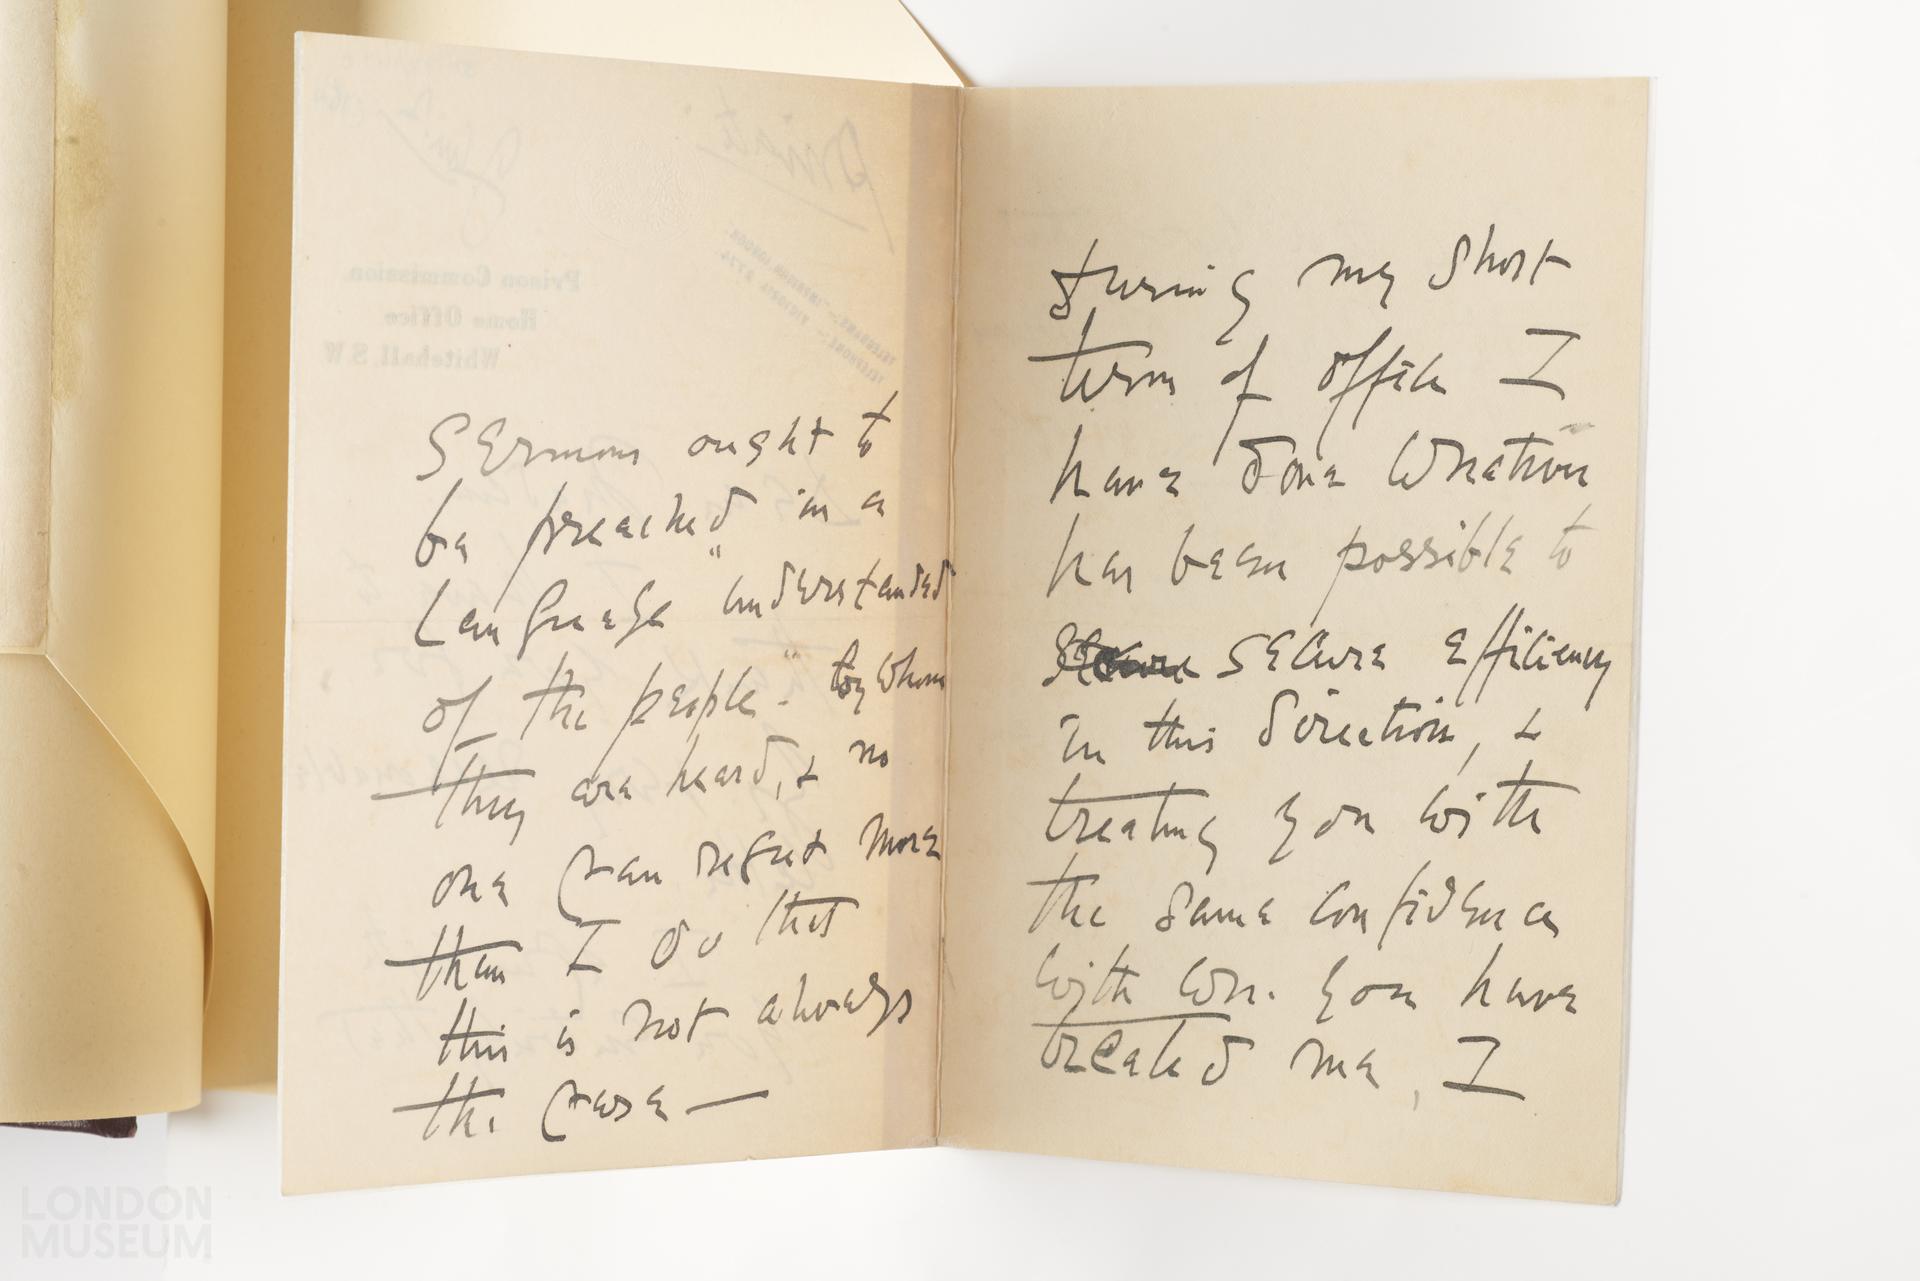 Prison Commission
Home Office
Whitehall. S.W
Private
Sermons ought to
be preached in a
Language "understanded
of the people" by whom
they are heard, & no
one can regret more
than I do that
this is not always
the case —
During my short
term of office I
have done whatever
has been possible to
secure efficiency
in this direction, &
treating you with
the same confidence
with wh. you have
treated me, I
LONDON
MUSEUM